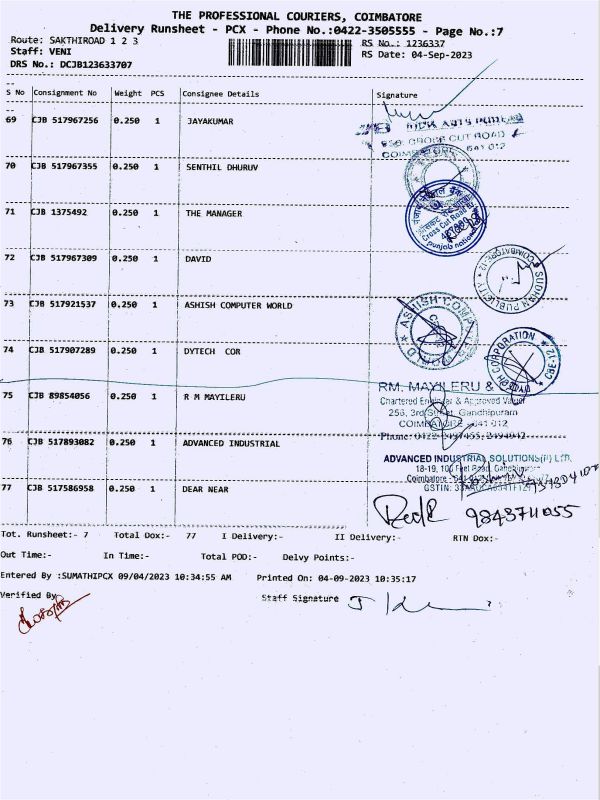 THE PROFESSIONAL COURIERS, COIMBATORE
Delivery Runsheet - PCX - Phone No.:0422-3505555 - Page No.:7
Route: SAKTHIROAD 1 2 3
RS No.: 1236337
Staff: VENI
RS Date: 04-Sep-2023
DRS No.: DCJB123633707
S No Consignment No Weight PCS Consignee Details Signature
69 CJB 517967256 0.250 1 JAYAKUMAR
CROSS CUT ROAD
COIMBATORE 641 012
70 CJB 517967355 0.250 1 SENTHIL DHURUV
71 CJB 1375492 0.250 1 THE MANAGER
Cross Cut Road
punjab national
72 CJB 517967309 0.250 1 DAVID
PUBLICITY COIMBATORE-12
73 CJB 517921537 0.250 1 ASHISH COMPUTER WORLD
ASHISH COMP
74 CJB 517907289 0.250 1 DYTECH COR
DYTECH CORPORATION CBE-12
75 CJB 89854056 0.250 1 R M MAYILERU
RM. MAYILERU &
Chartered Engineer & Approved Valuer
256, 3rd Street, Gandhipuram
COIMBATORE - 641 012
Phone: 0422-2497455, 2494942
76 CJB 517893082 0.250 1 ADVANCED INDUSTRIAL
ADVANCED INDUSTRIAL SOLUTIONS(P) LTD.
18-19, 100 Feet Road, Gandhipuram
Coimbatore
GSTIN:
77 CJB 517586958 0.250 1 DEAR NEAR
9843711055
Tot. Runsheet:- 7 Total Dox:- 77 I Delivery:- II Delivery:- RTN Dox:-
Out Time:- In Time:- Total POD:- Delvy Points:-
Entered By :SUMATHIPCX 09/04/2023 10:34:55 AM Printed On: 04-09-2023 10:35:17
Verified By
Staff Signature